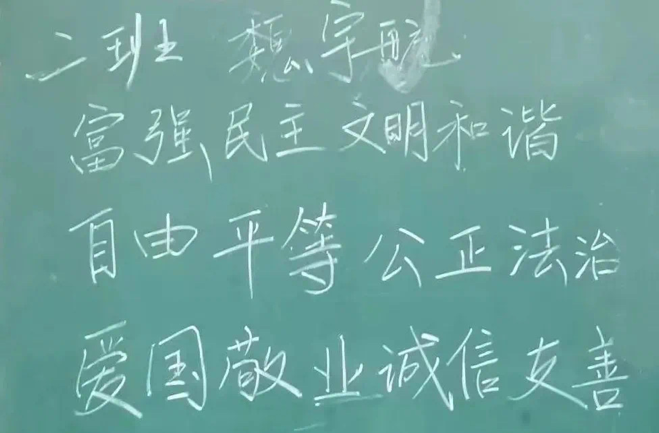 二班 魏宇航
富强民主文明和谐
自由平等公正法治
爱国敬业诚信友善